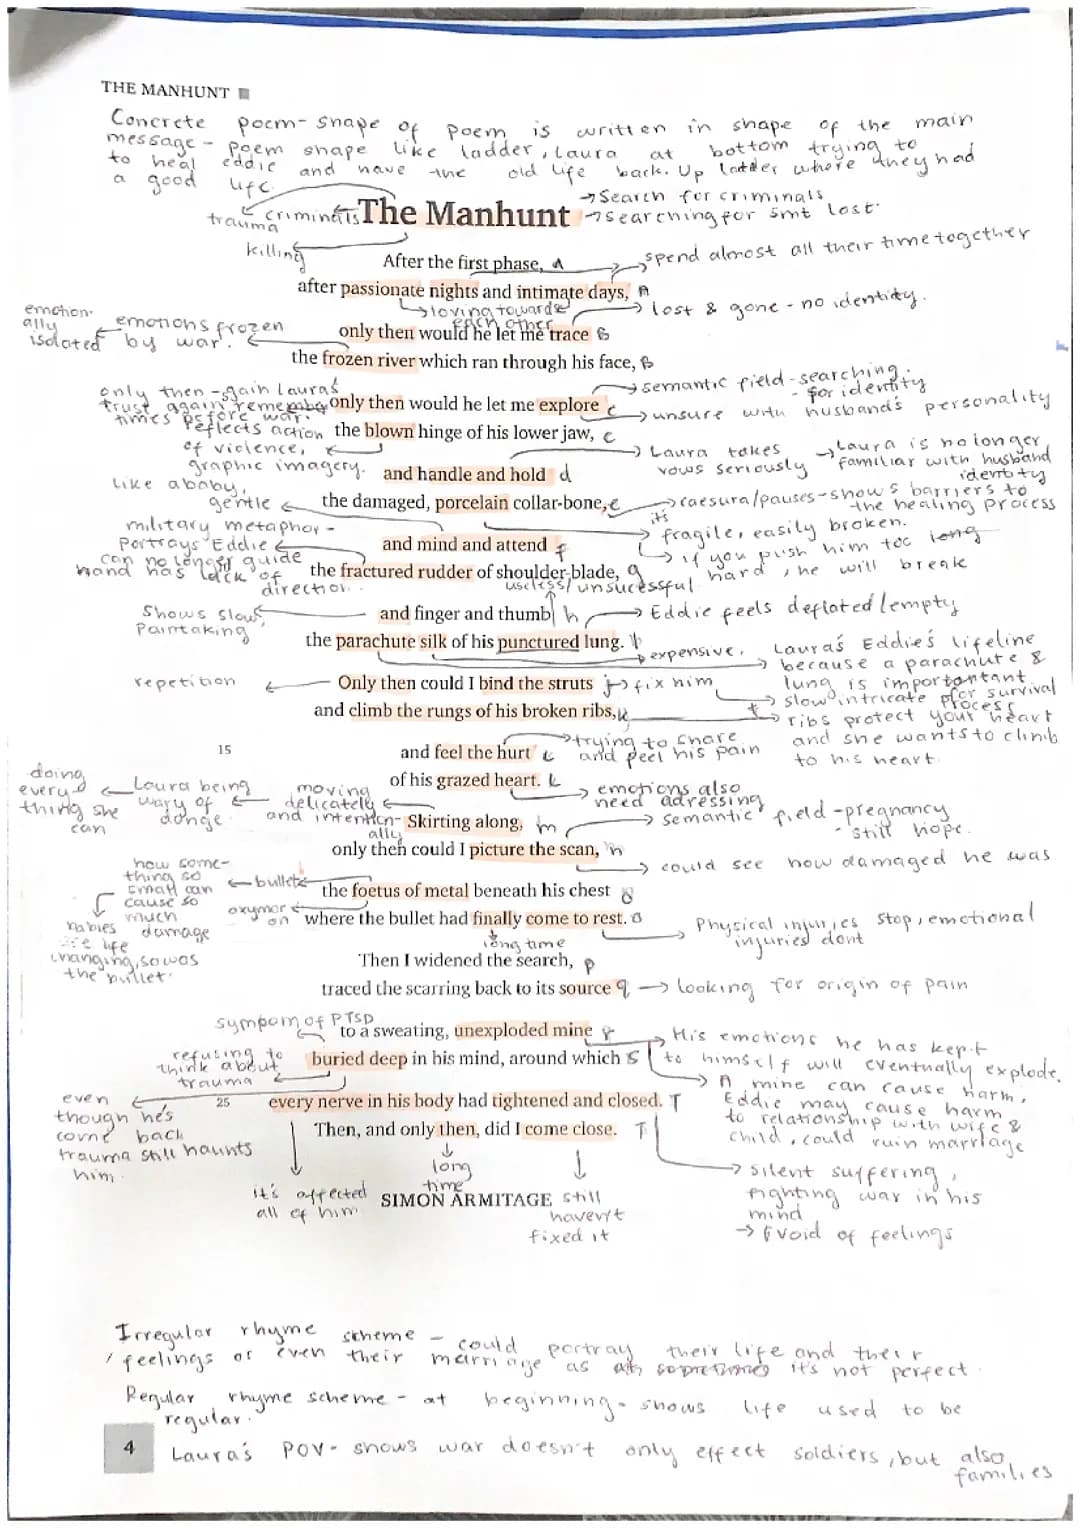 THE MANHUNT
Concrete poem - shape of poem is written in shape of the main
message - poem shape like ladder, Laura at bottom trying to
to heal eddie and have the old life back. Up ladder where they had
a good life.
→ Search for criminals
trauma criminals The Manhunt → searching for smt lost.
killing
After the first phase, A → spend almost all their time together
after passionate nights and intimate days, A
→ loving towards each other
→ lost & gone - no identity.
emotionally isolated ← emotions frozen by war.
only then would he let me trace B
the frozen river which ran through his face, B
only then - gain Laura's trust again remember times before war.
→ semantic field - searching. - for identity
only then would he let me explore c → unsure with husband's personality
reflects action of violence, graphic imagery.
the blown hinge of his lower jaw, c
→ Laura takes vows seriously → Laura is no longer familiar with husband identity
and handle and hold d
like a baby, gentle
the damaged, porcelain collar-bone, e → caesura/pauses - shows barriers to the healing process
→ its fragile, easily broken.
military metaphor - Portrays Eddie can no longer guide hand has lack of direction.
and mind and attend f → if you push him too long hard, he will break
the fractured rudder of shoulder-blade, g
useless/unsucessful
Shows slow, Paintaking
and finger and thumb h → Eddie feels deflated/empty
the parachute silk of his punctured lung. h
→ expensive.
→ Laura's Eddie's lifeline because a parachute & lung is importantant for survival
repetition ← Only then could I bind the struts j → fix him
→ slow intricate process
and climb the rungs of his broken ribs, k → ribs protect your heart and she wants to climb to his heart.
15
and feel the hurt L → trying to share and feel his pain
of his grazed heart. L → emotions also need adressing
doing everything she can ← Laura being wary of donge ← moving delicately and intentionally
Skirting along, m → semantic field - pregnancy - still hope.
only then could I picture the scan, n → could see how damaged he was
how something so small can cause so much damage ← bullet
the foetus of metal beneath his chest o
oxymoron
where the bullet had finally come to rest. o → Physical injuries stop, emotional injuries dont
long time
babies are life changing, so was the bullet.
Then I widened the search, p
traced the scarring back to its source q → looking for origin of pain
sympom of PTSD
to a sweating, unexploded mine r → His emotions he has kept to himself will eventually explode.
refusing to think about trauma
buried deep in his mind, around which s → A mine can cause harm, Eddie may cause harm to relationship with wife & child, could ruin marriage
even though he's come back trauma still haunts him.
25
every nerve in his body had tightened and closed. T
Then, and only then, did I come close. T
→ silent suffering, fighting war in his mind
→ avoid of feelings
long time
it's affected all of him
SIMON ARMITAGE
still haven't fixed it
Irregular rhyme scheme - could portray their life and their
/ feelings or even their marriage as it's not perfect.
Regular rhyme scheme - at beginning - shows life used to be
regular.
4
Laura's POV - shows war doesn't only effect soldiers, but also
families